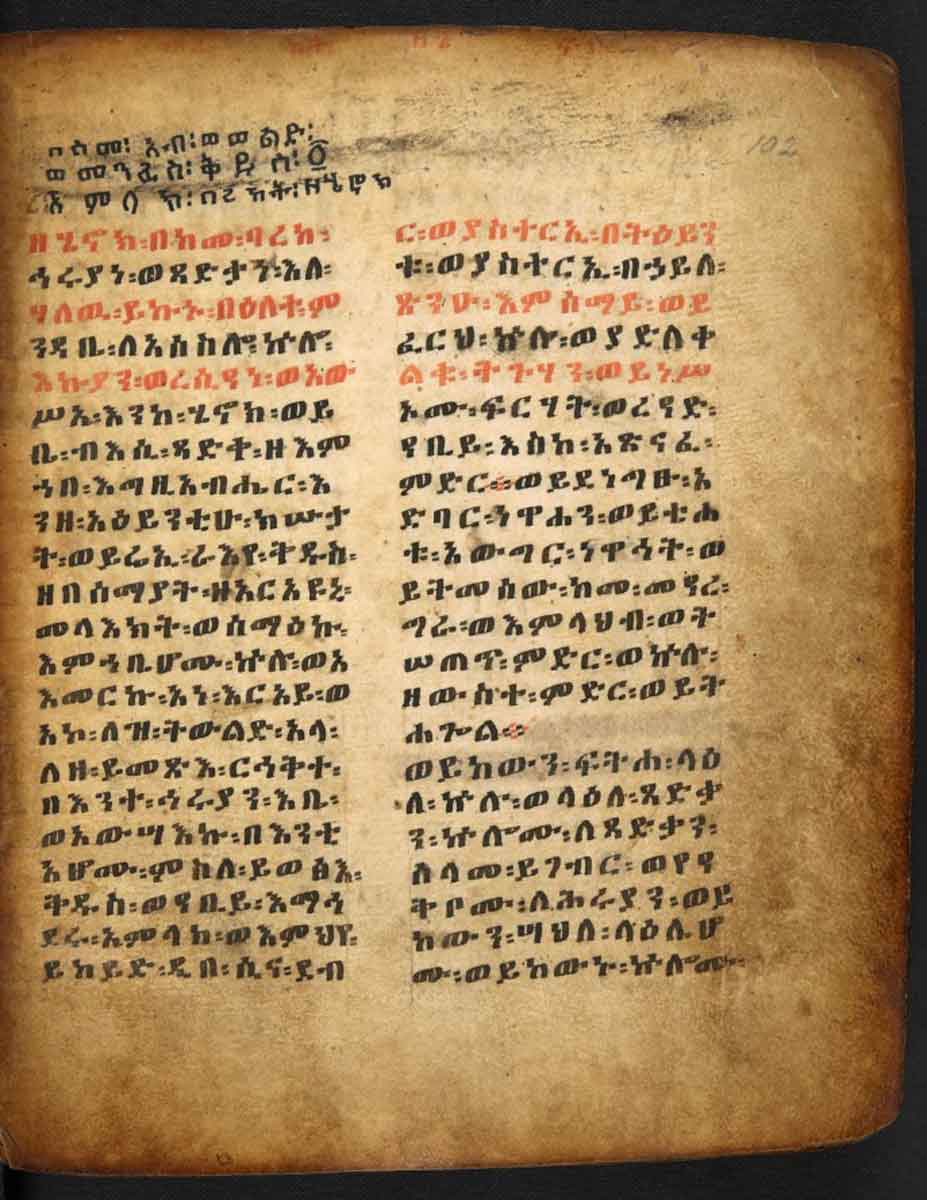 በስመ፡ አብ፡ ወወልድ፡
ወመንፈስ፡ ቅዱስ፡ ፩
አምላክ፡ በረከት፡ ዘሄኖክ
ዘሄኖክ፡ በከመ፡ ባረከ፡
ኅሩያነ፡ ወጻድቃነ፡ እለ፡
ሃለዉ፡ ይኩኑ፡ በዕለተ፡ ም
ንዳቤ፡ ለአሰስሎ፡ ኵሎ፡
እኩያን፡ ወረሲዓነ፡ ወአው
ሥአ፡ እንከ፡ ሄኖክ፡ ወይ
ቤ፡ ብእሲ፡ ጻድቅ፡ ዘእም
ኀበ፡ እግዚአብሔር፡ እ
ንዘ፡ አዕይንቲሁ፡ ክሡታ
ት፡ ወይሬኢ፡ ራእየ፡ ቅዱስ፡
ዘበሰማያት፡ ዘአርአዩኒ፡
መላእክት፡ ወሰማዕኩ፡
እምኀቤሆሙ፡ ኵሎ፡ ወአ
እመርኩ፡ አነ፡ እርአይ፡ ወ
አኮ፡ ለዝ፡ ትውልድ፡ አላ፡
ለዘ፡ ይመጽእ፡ ርኅቅተ፡
በእንተ፡ ኅሩያን፡ እቤ፡
ወአውሣእኩ፡ በእንቲ
አሆሙ፡ ምስለ፡ ይወፅእ፡
ቅዱስ፡ ወዓቢይ፡ እማኅ
ደሩ፡ አምላክ፡ ወእምህየ፡
ይከይድ፡ ዲበ፡ ሲና፡ ደብ
ር፡ ወያስተርኢ፡ በትዕይን
ቱ፡ ወያስተርኢ፡ በኃይለ፡
ጽንዑ፡ እምሰማይ፡ ወይ
ፈርህ፡ ኵሉ፡ ወያድለቀ
ልቁ፡ ትጉሃን፡ ወይነሥ
አሙ፡ ፍርሃት፡ ወረዓድ፡
ዓቢይ፡ እስከ፡ አጽናፈ፡
ምድር። ወይደነግፁ፡ አ
ድባር፡ ነዋኃን፡ ወይቴሐ
ቱ፡ አውግር፡ ነዋኃት፡ ወ
ይትመሰው፡ ከመ፡ መዓረ፡
ግራ፡ ወእምላህብ፡ ወት
ሠጠም፡ ምድር፡ ወኵሉ፡
ዘውስተ፡ ምድር፡ ወይት
ሐጐል።
ወይከውን፡ ፍትሐ፡ ላዕ
ለ፡ ኵሉ፡ ወላዕለ፡ ጻድቃ
ን፡ ኵሎሙ፡ ለጻድቃን፡
ሰላመ፡ ይገብር፡ ወየዓ
ቅቦሙ፡ ለኅሩያን፡ ወይ
ከውን፡ ሣህለ፡ ላዕሌሆ
ሙ፡ ወይከውኑ፡ ኵሎሙ፡